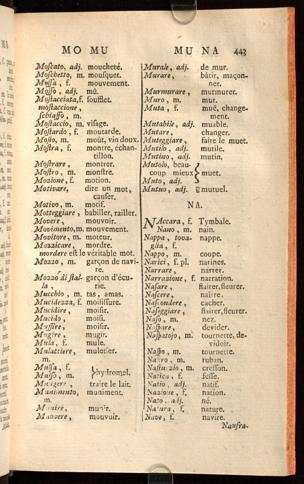 MO MU
Moscato, adj. moucheté.
Moschetto, m. mousquet.
Mossa, f. mouvement.
Mosso, adj. mû.
Mostacciata, f. soufflet.
mostaccione,
schiaffo, m.
Mostaccio, m. visage.
Mostardo, f. moutarde.
Mosto, m. moût, vin doux.
Mostra, f. montre, échan-
tillon.
Mostrare, montrer.
Mostro, m. monstre.
Mozione, f. motion.
Motivare, dire un mot,
causer.
Motivo, m. motif.
Motteggiare, babiller, railler.
Movere, mouvoir.
Movimento, m. mouvement.
Movitore, m. moteur.
Mozzicare, mordre.
mordere est le véritable mot.
Mozzo, m. garçon de navi-
re.
Mozzo di stal- garçon d'écu-
la, rie.
Mucchio, m. tas, amas.
Mucidezza, f. moisissure.
Mucidire, moisir.
Mucido, moisi.
Muffire, moisir.
Mugire, mugir.
Mula, f. mule.
Mulattiere, muletier.
m.
Mulsa, f.
Mulso, m. hydromel.
Mungere, traire le lait.
Munimento, muniment.
m.
Munire, munir.
Muovere, mouvoir.
MU NA 443
Murale, adj. de mur.
Murare, bâtir, maçon-
ner.
Murmurare, murmurer.
Muro, m. mur.
Muta, f. mue, change-
ment.
Mutabile, adj. muable.
Mutare, changer.
Muteggiare, faire le muet.
Mutilo, adj. mutilé.
Mutino, adj. mutin.
Mutolo, beau-
coup mieux muet.
Muto, adj.
Mutuo, adj. mutuel.
NA.
NAccara, f. Tymbale.
Nano, m. nain.
Nappa, tova- nappe.
glia, f.
Nappo, m. coupe.
Narici, f. pl. narines.
Narrare, narrer.
Narrazione, f. narration.
Nasare, flairer, fleurer.
Nascere, naître.
Nascondere, cacher.
Naseggiare, flairer, fleurer.
Naso, m. nez.
Naspare, devider.
Naspatojo, m. tournette, de-
vidoir.
Naspo, m. tournette.
Nastro, m. ruban.
Nasturzio, m. cresson.
Natica, f. fesse.
Natio, adj. natif.
Nazione, f. nation.
Nato, adj. né.
Natura, f. nature.
Nave, f. navire.